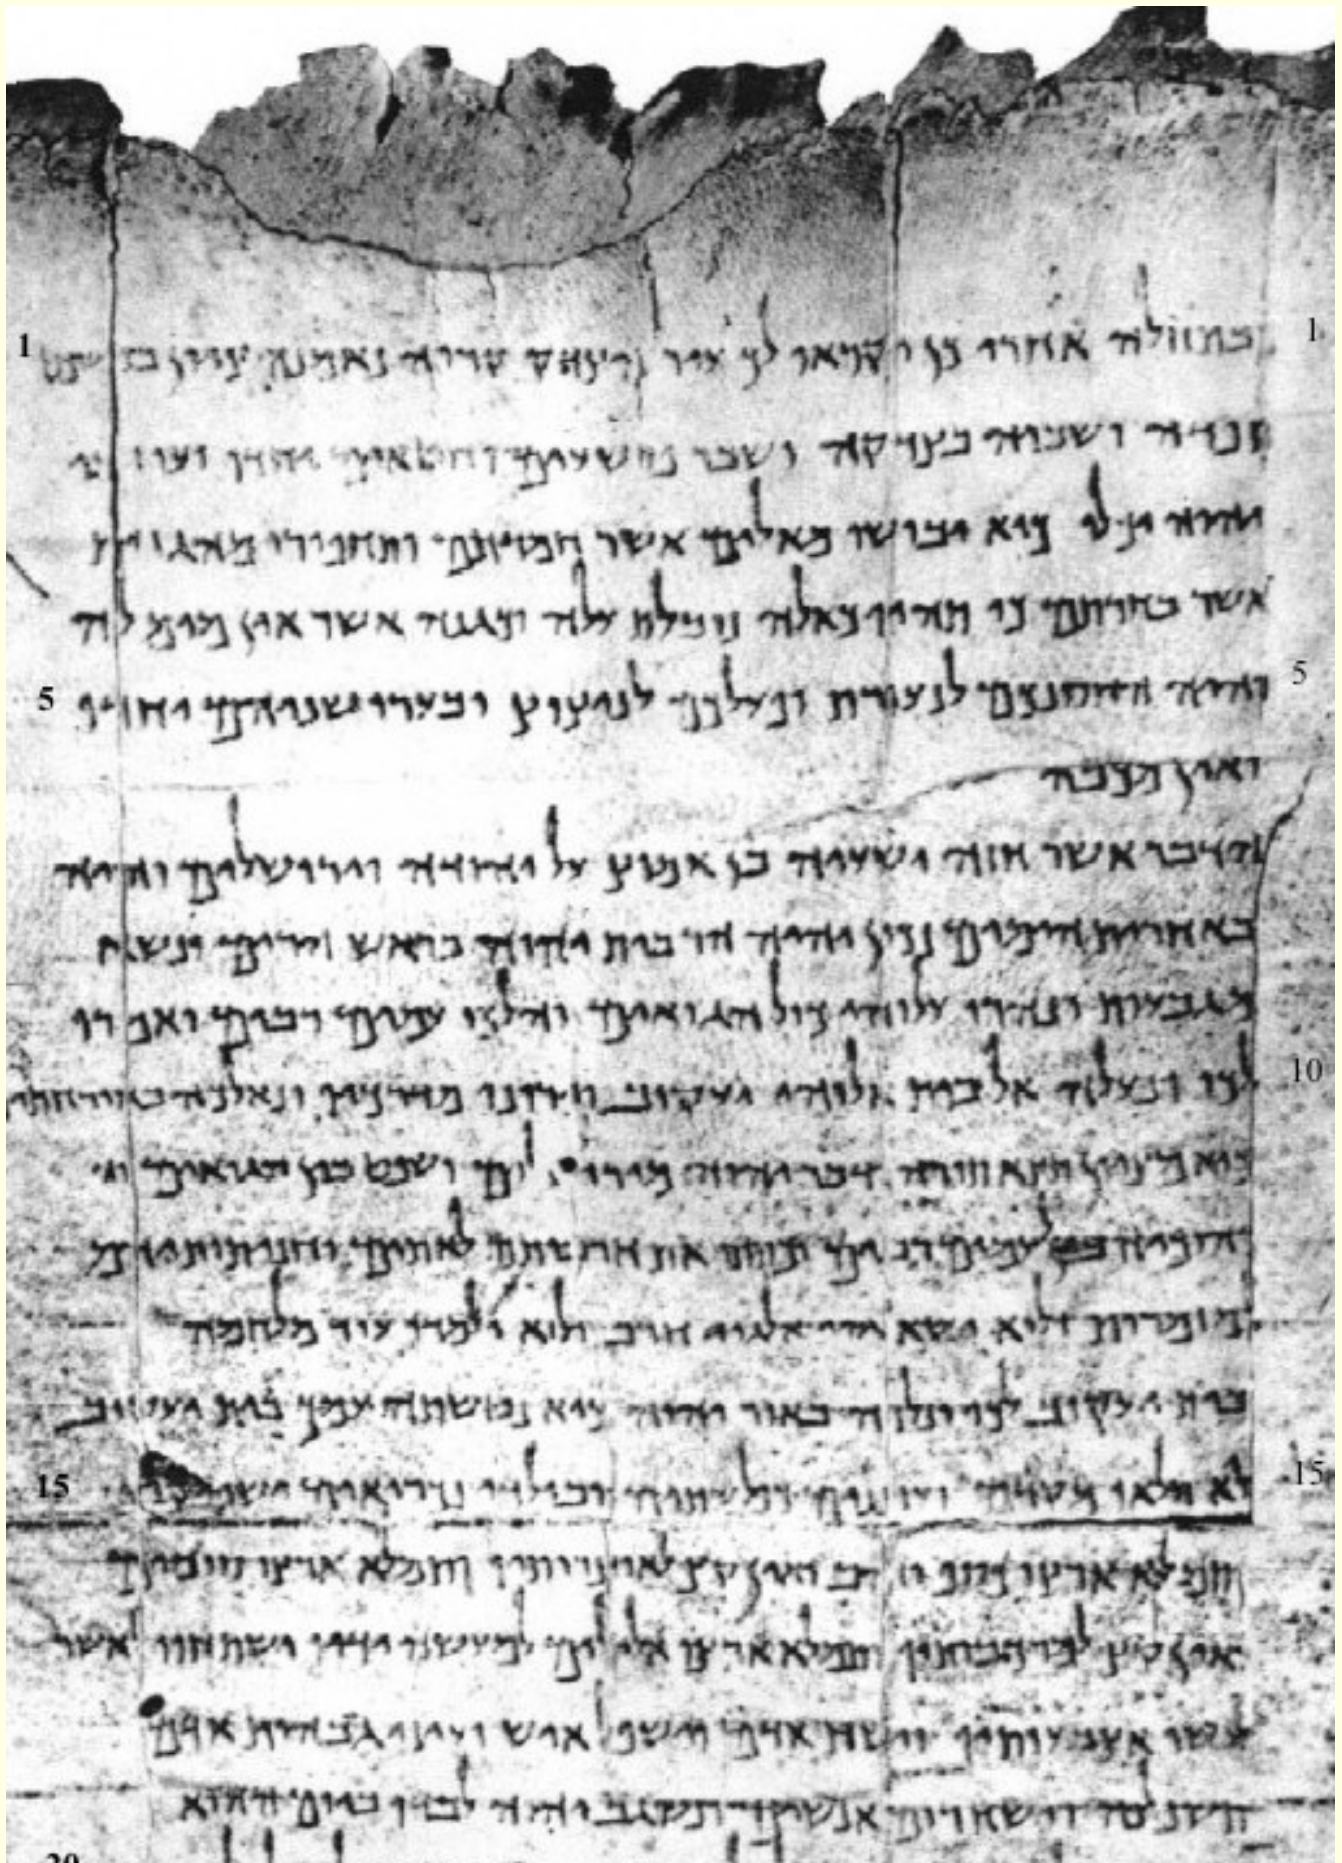 1 כבתחלה אחרי כן יקראו לך עיר הצדק קריה נאמנה ציון 1
ושביה בצדקה ושבר פושעים וחטאים יחדו
יהוה יכלו כיא יבושו מאלים אשר חמדתם ותחפרו
אשר בחרתם כי תהיו כאלה נובלת עלה וכגנה אשר אין מים לה
5 והיה החסנכם לנעורת ופעלכם לניצוץ ובערו שניהם יחדיו 5
ואין מכבה
הדבר אשר חזה ישעיה בן אמוץ על יהודה וירושלים והיה
באחרית הימים נכון יהיה הר בית יהוה בראש הרים ונשא
מגבעות ונהרו עלוהי כול הגואים והלכו עמים רבים ואמרו
10 לכו ונעלה אל בית אלוהי יעקוב וירונו מדרכיו ונאלכה
כיא מציון תצא תורה ודבר יהוה ושפט בין הגואים
לעמים רבים וכתתו את חרבותם לאתים
ולוא ישא גוי אל גוי חרב ולוא ילמדו עוד מלחמה
בית יעקוב לכו ונלכה באור יהוה כיא נטשתה עמך בית יעקוב
15 מלאו מקדם ועוננים כפלשתים ובילדי נכריאים 15
ותמלא ארצו כסף וזהב ואין קץ לאוצרותיו ותמלא ארצו סוסים
אין קץ למרכבותיו ותמלא ארצו אלילים למעשי ידיו ישתחוו לאשר
עשו אצבעותיו וישח אדם וישפל איש ועיני גבהות אדם
אנשים ונשגב יהוה לבדו ביום ההוא
20